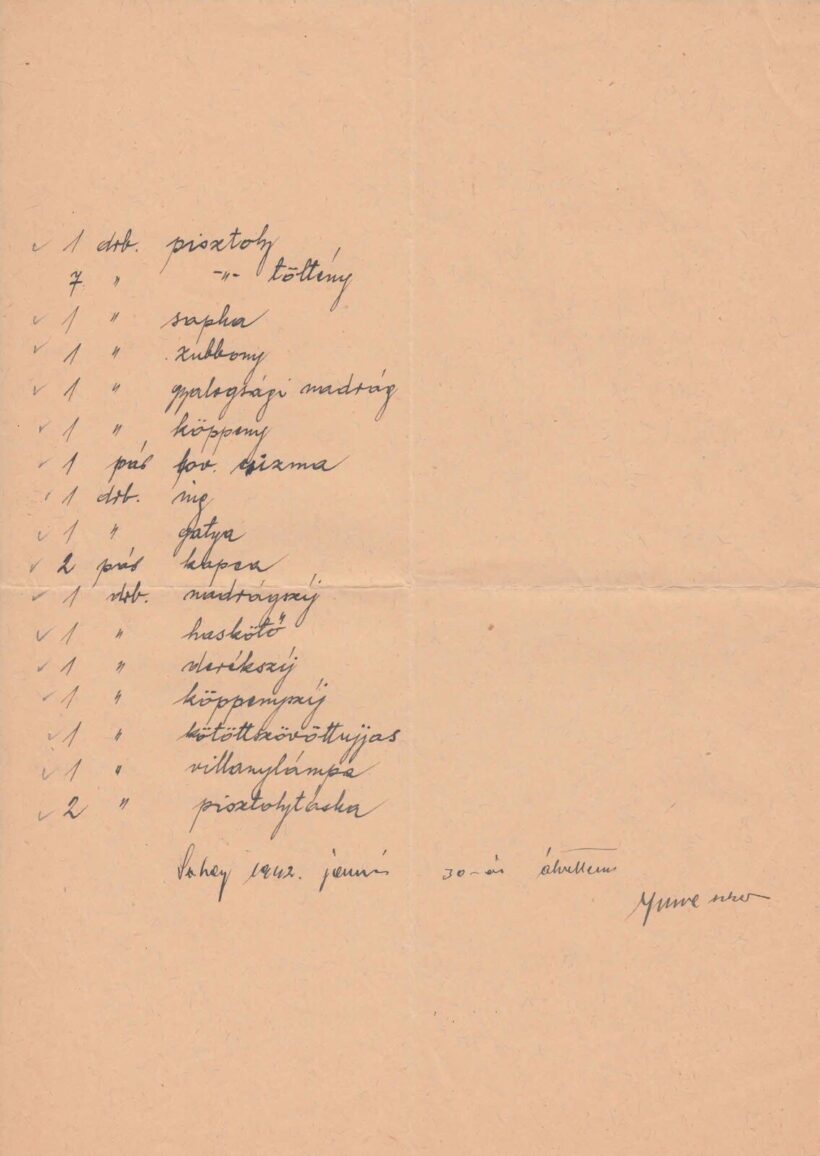 ✓ 1 drb. pisztoly
7 " -"- töltény
✓ 1 " sapka
✓ 1 " zubbony
✓ 1 " gyalogsági nadrág
✓ 1 " köppeny
✓ 1 pár csizma
✓ 1 drb. ing
✓ 1 " gatya
✓ 2 pár kapca
✓ 1 drb. nadrágszíj
✓ 1 " haskötő
✓ 1 " derékszíj
✓ 1 " köppenyszíj
✓ 1 " kötöttszövöttujjas
✓ 1 " villanylámpa
✓ 2 " pisztolytáska
1942. január 30-án átvettem